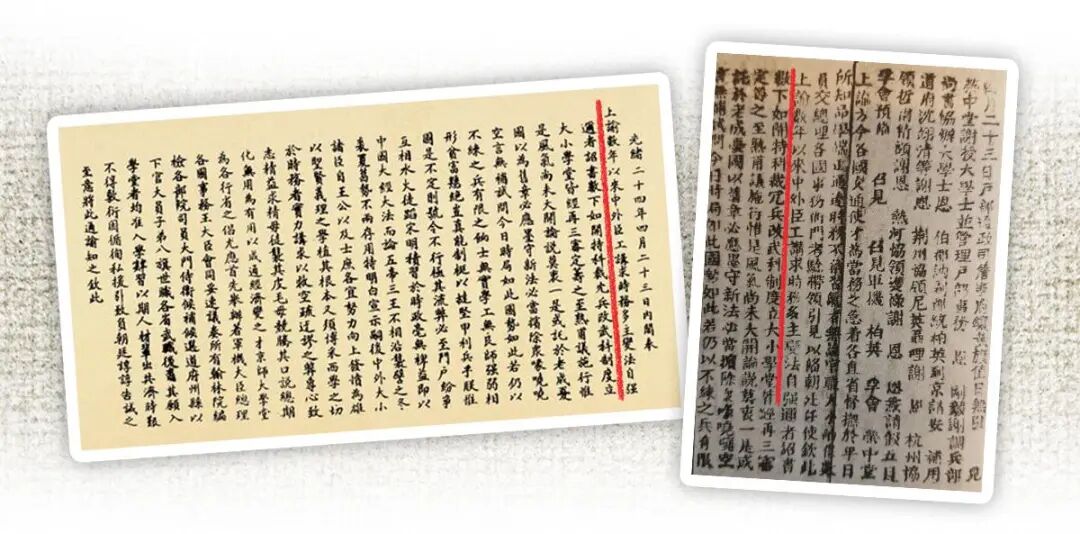 光緒二十四年四月二十三日內閣奉
上諭數年以來中外臣工講求時務多主變法自强
邇者詔書數下如開特科裁冗兵改武科制度立
大小學堂皆經再三審定籌之至熟甫議施行惟
是風氣尚未大開論說莫衷一是或託於老成憂
國以為舊章必應墨守新法必當擯除衆喙嘵嘵
空言無補試問今日時局如此國勢如此若仍以
不練之兵有限之餉士無實學工無良師强弱相
形貧富懸絕直真能制梃以撻堅甲利兵乎朕惟
國是不定則號令不行極其流弊必至門戶紛爭
互相水火徒蹈宋明積習於時政毫無裨益即以
中國大經大法而論五帝三王不相沿襲譬之冬
裘夏葛勢不兩存用特明白宣示嗣後中外大小
諸臣自王公以及士庶各宜努力向上發憤為雄
以聖賢義理之學植其根本又須博采西學之切
於時務者實力講求以救空疏迂謬之弊專心致
志精益求精毋徒襲其皮毛毋競騰其口說總期
化無用為有用以成通經濟變之才京師大學堂
為各行省之倡尤應首先舉辦著軍機大臣總理
各國事務王大臣會同妥速議奏所有翰林院編
檢各部院司員大門侍衞候補候選道府州縣以
下官大員子弟八旗世職各省武職後裔其願入
學堂者均准入學肄習以期人材輩出共濟時艱
不得敷衍因循徇私援引致負朝廷諄諄告誡之
至意將此通諭知之欽此
二十三日戶部
中堂謝授大學士並管理戶部事務 恩 剛毅謝調兵部
尚書協辦大學士恩 伯都訥副都統柏英到京請安 補用
道府沈翊清等謝恩 荆州協領 謝 恩 杭州協
領 謝恩 熱河協領連隆謝 恩 請假五日
學會預備 召見 召見軍機 柏英 學會 榮中堂
上諭方今各國交通使才為當務之急着各直省督撫於平日
所知品學端正通達時務不染
員交總理各國事務衙門考驗帶領引見以備朝廷任使欽此
上諭數年以來中外臣工講求時務多主變法自强邇者詔書
數下如開特科裁冗兵改武科制度立大小學堂皆經再三審
定籌之至熟甫議施行惟是風氣尚未大開論說莫衷一是或
託於老成憂國以為舊章必應墨守新法必當擯除衆喙嘵嘵空
言無補試問今日時局如此國勢如此若仍以不練之兵有限